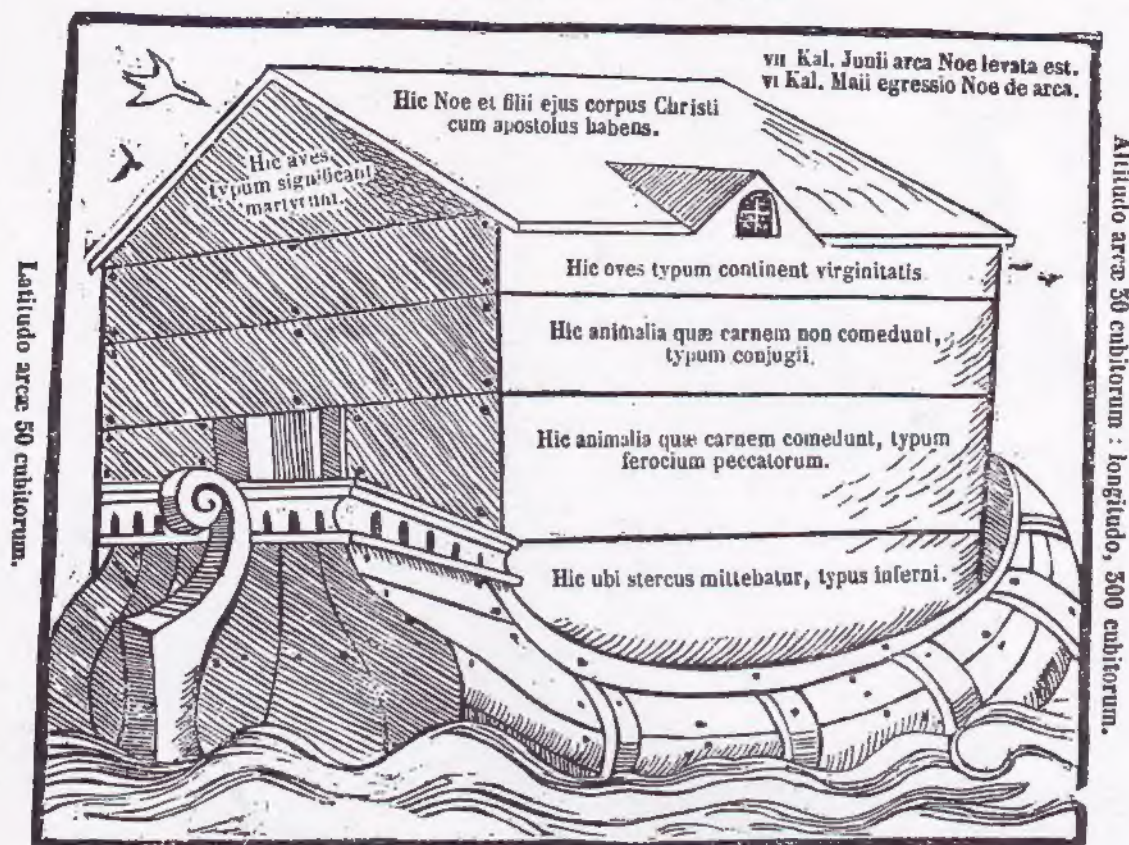 vii Kal. Junii arca Noe levata est.
vi Kal. Maii egressio Noe de arca.
Hic Noe et filii ejus corpus Christi
cum apostolus habens.
Hic aves
typum significant
martyrum.
Hic oves typum continent virginitatis
Hic animalia quæ carnem non comedunt,
typum conjugii.
Hic animalia quæ carnem comedunt, typum
ferocium peccatorum.
Hic ubi stercus mittebatur, typus inferni.
Latitudo arcæ 50 cubitorum.
Altitudo arcæ 30 cubitorum : longitudo, 300 cubitorum.